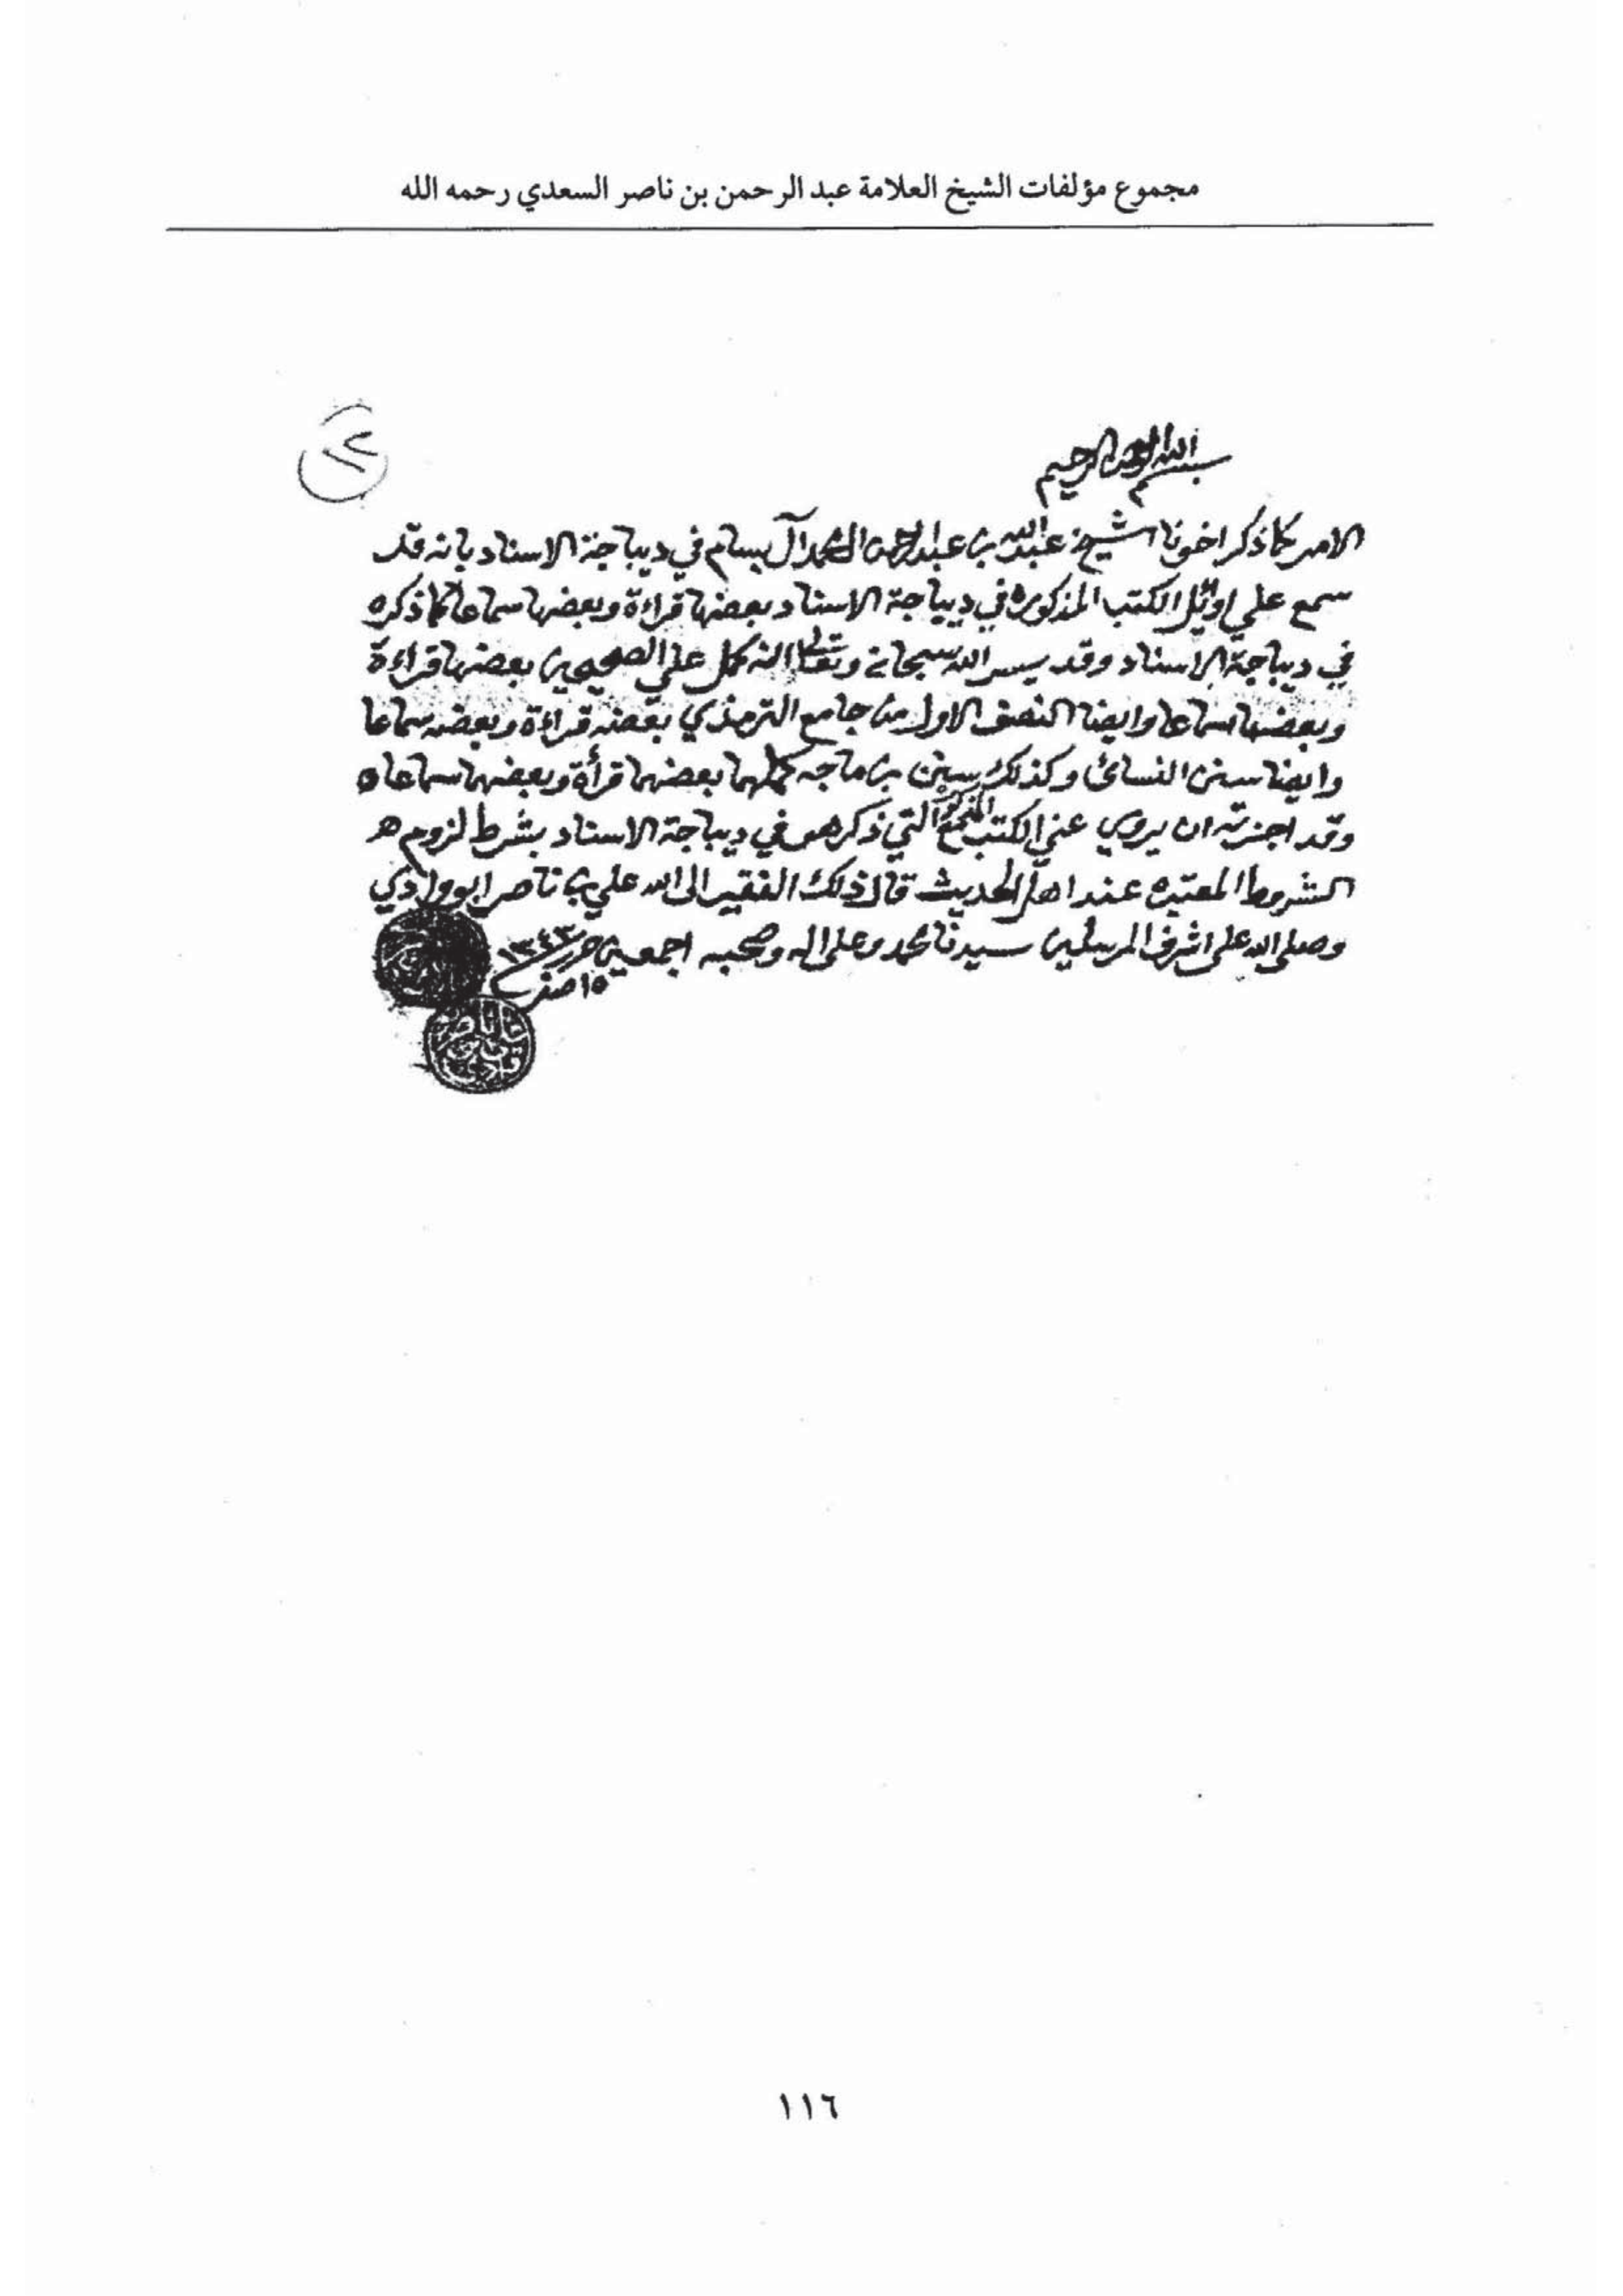 مجموع مؤلفات الشيخ العلامة عبد الرحمن بن ناصر السعدي رحمه الله
١٢
بسم الله الرحمن الرحيم
الامر كما ذكر اخونا الشيخ عبدالله بن عبدالرحمن المحمد آل بسام في ديباجة الاسناد بانه قد
سمع علي اوئل الكتب المذكوره في ديباجة الاسناد بعضها قراءة وبعضها سماعا كما ذكره
في ديباجة الاسناد وقد يسر الله سبحانه وتعالى انه كمل علي الصحيحين بعضها قراءة
وبعضها سماعا وايضا النصف الاول من جامع الترمذي بعضه قراءة وبعضه سماعا
وايضا سنن النسائ وكذلك سنن بن ماجه كملهما بعضهما قرأة وبعضهما سماعاه
وقد اجزته ان يروي عني الكتب التي ذكر هو في ديباجة الاسناد بشرط لزوم
الشروط المعتبره عند اهل الحديث قال ذلك الفقير الى الله علي بن ناصر ابو وادي
وصلى الله على اشرف المرسلين سيدنا محمد وعلى اله وصحبه اجمعين حرر ١٣٤٣
١٥ صفر
١١٦